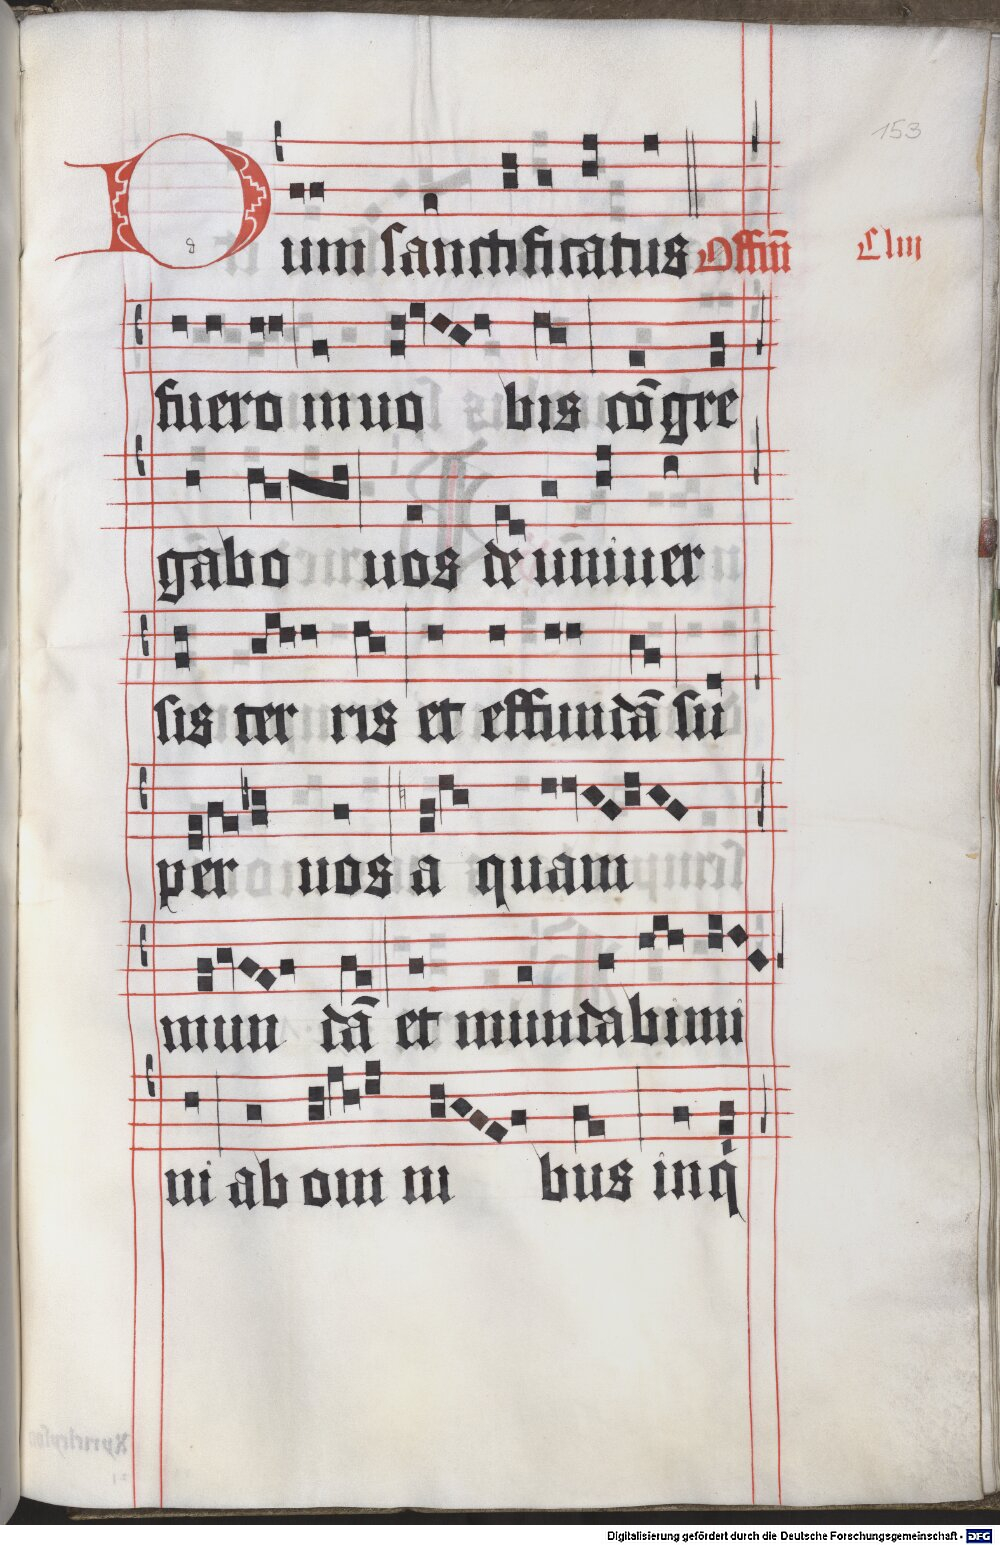 153
Dum sanctificatus Offm̄ Cliii
fuero in uo bis cōgre
gabo uos de uniuer
sis ter ris et effundā su
per uos a quam
mun dā et mundabimi
ni ab om ni bus inq̇
Digitalisierung gefördert durch die Deutsche Forschungsgemeinschaft - DFG